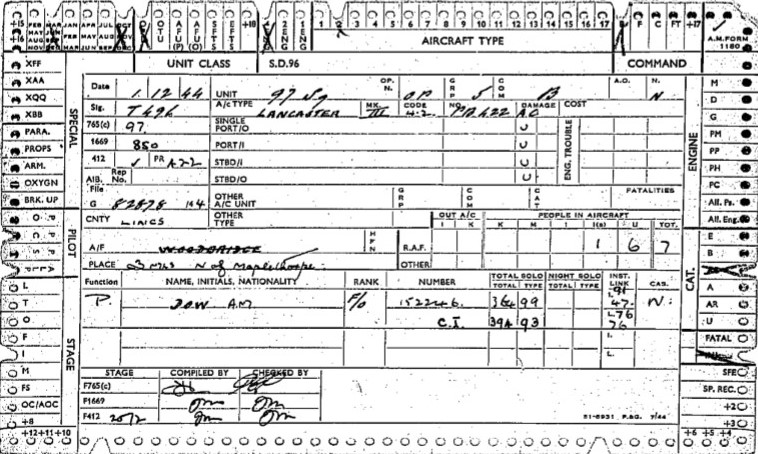 +15 FEB MAR JAN APR JUL OCT
+16 MAY JUN FEB MAY
AUG
NOV DEC MAR JUN SEP DEC
OTU AFU (P) AFU (O) SFTS EFTS +18 2 ENG 1 2 3 4 5 6 7 8 9 10 11 12 13 14 15 16 17 B F C FT +17
A.M. FORM 1180
AIRCRAFT TYPE
UNIT CLASS S.D.96 COMMAND
XFF
XAA
XQQ
XBB
PARA.
PROPS
ARM.
OXYGN
BRK. UP
SPECIAL
PILOT
L
T
O
F
I
M
FS
OC/AOC
+8
+12+11+10
STAGE
Date 1.12.44 UNIT 97 Sq OP. N. OP GRP 5 COM B A.O. N. N
Sig. T496 A/C TYPE LANCASTER MK. III CODE 4-2 NO. PB422 DAMAGE AC COST
765(c) 97 SINGLE PORT/O U ENG. TROUBLE
1669 850 PORT/I U
412 ✓ PR A22 STBD/I U
AIB. Rep No. STBD/O U
File G 82878/44 OTHER A/C UNIT GRP COM CAT FATALITIES
CNTY LINCS OTHER TYPE OUT A/C I K PEOPLE IN AIRCRAFT K M I I(s) U TOT.
A/F WOODBRIDGE HFN R.A.F. 1 6 7
PLACE 3 Mls N of Maplethorpe. OTHER
Function NAME, INITIALS, NATIONALITY RANK NUMBER TOTAL SOLO TOTAL TYPE NIGHT SOLO TOTAL TYPE INST. LINK CAS.
P. DOW A.M F/O 152246. 364 99 I. 91 47. N.
C.I. 394 93 L. 76 76
I.
L.
STAGE COMPILED BY CHECKED BY
F765(c)
F1669
F412 20/2
51-8931 P.&G. 7/44
ENGINE
CAT.
M
D
G
PM
PP
PH
PC
All. Ps.
All. Eng.
E
B
A
AR
U
FATAL
SFE
SP. REC.
+2
+3
+6 +5 +4